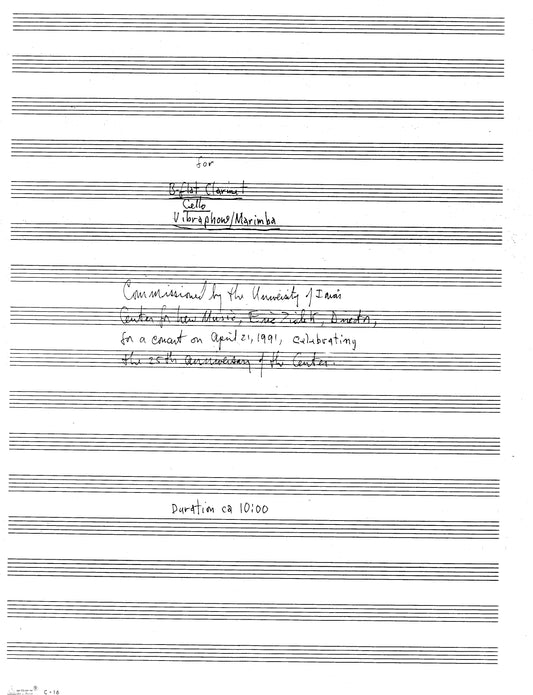 for
B-flat Clarinet
Cello
Vibraphone/Marimba
Commissioned by the University of Iowa
Center for New Music, Eric Ziolek, Director,
for a concert on April 21, 1991, celebrating
the 25th anniversary of the Center.
Duration ca 10:00
C-16